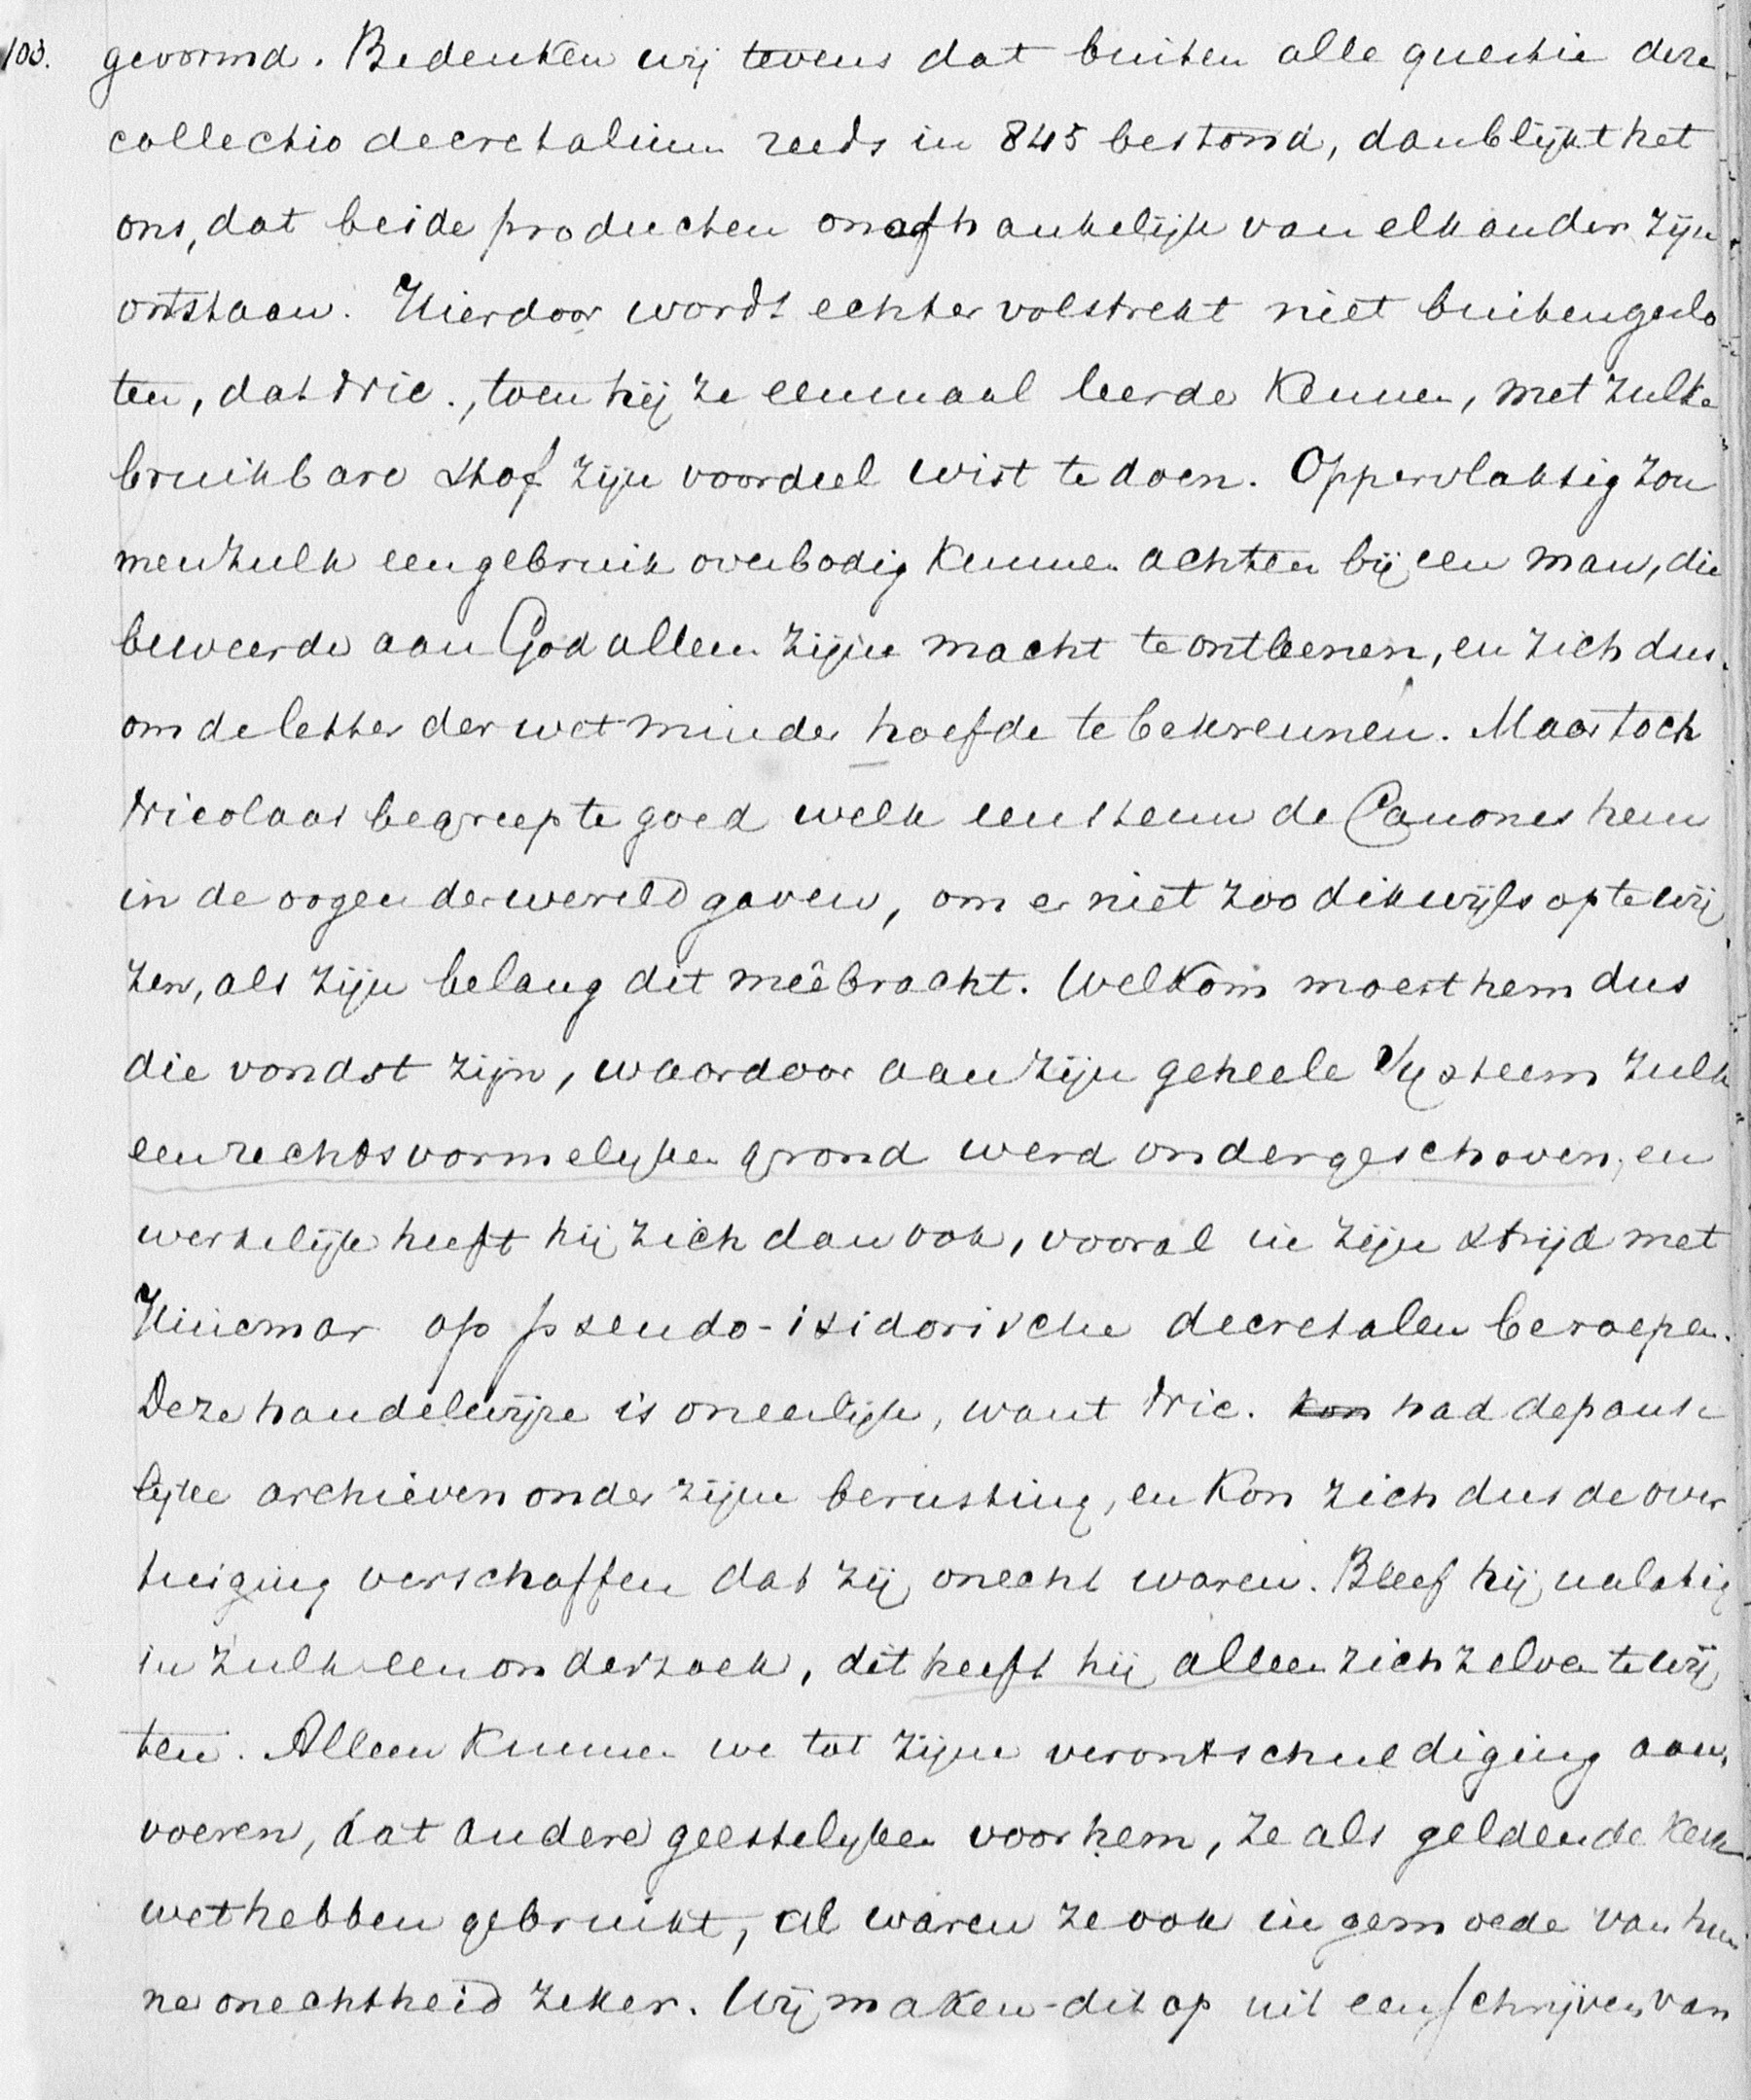 103. gevormd. Bedenken wij tevens dat buiten alle questie deze
collectio decretalium reeds in 845 bestond, dan blijkt het
ons, dat beide producten onafhankelijk van elkander zijn
ontstaan. Hierdoor wordt echter volstrekt niet buitengeslo
ten, dat Nic., toen hij ze eenmaal leerde kennen, met zulke
bruikbare stof zijn voordeel wist te doen. Oppervlaktig zou
men zulk een gebruik overbodig kunnen achten bij een man, die
beweerde aan God alleen zijne macht te ontleenen, en zich dus
om de letter der wet minder hoefde te bekreunen. Maar toch
Nicolaas begreep te goed welk een steun de Canones hem
in de oogen der wereld gaven, om er niet zoo dikwijls op te wij
zen, als zijn belang dit meêbracht. Welkom moest hem dus
die vondst zijn, waardoor aan zijn geheele Systeem zulk
een rechtsvormelyken grond werd ondergeschoven, en
werkelijk heeft hij zich dan ook, vooral in zijn strijd met
Hincmar op pseudo-isidorische decretalen beroepen.
Deze handelwijze is oneerlijk, want Nic. kon had de pause
lyke archieven onder zijne berusting, en kon zich dus de over
tuiging verschaffen dat zij onecht waren. Bleef hij nalatig
in zulk een onderzoek, dit heeft hij alleen zich zelven te wij
ten. Alleen kunnen we tot zijne verontschuldiging aan-
voeren, dat andere geestelyken voor hem, ze als geldende kerk-
wet hebben gebruikt, al waren ze ook in gemoede van hun
ne onechtheid zeker. Wij maken dit op uit een schrijven van